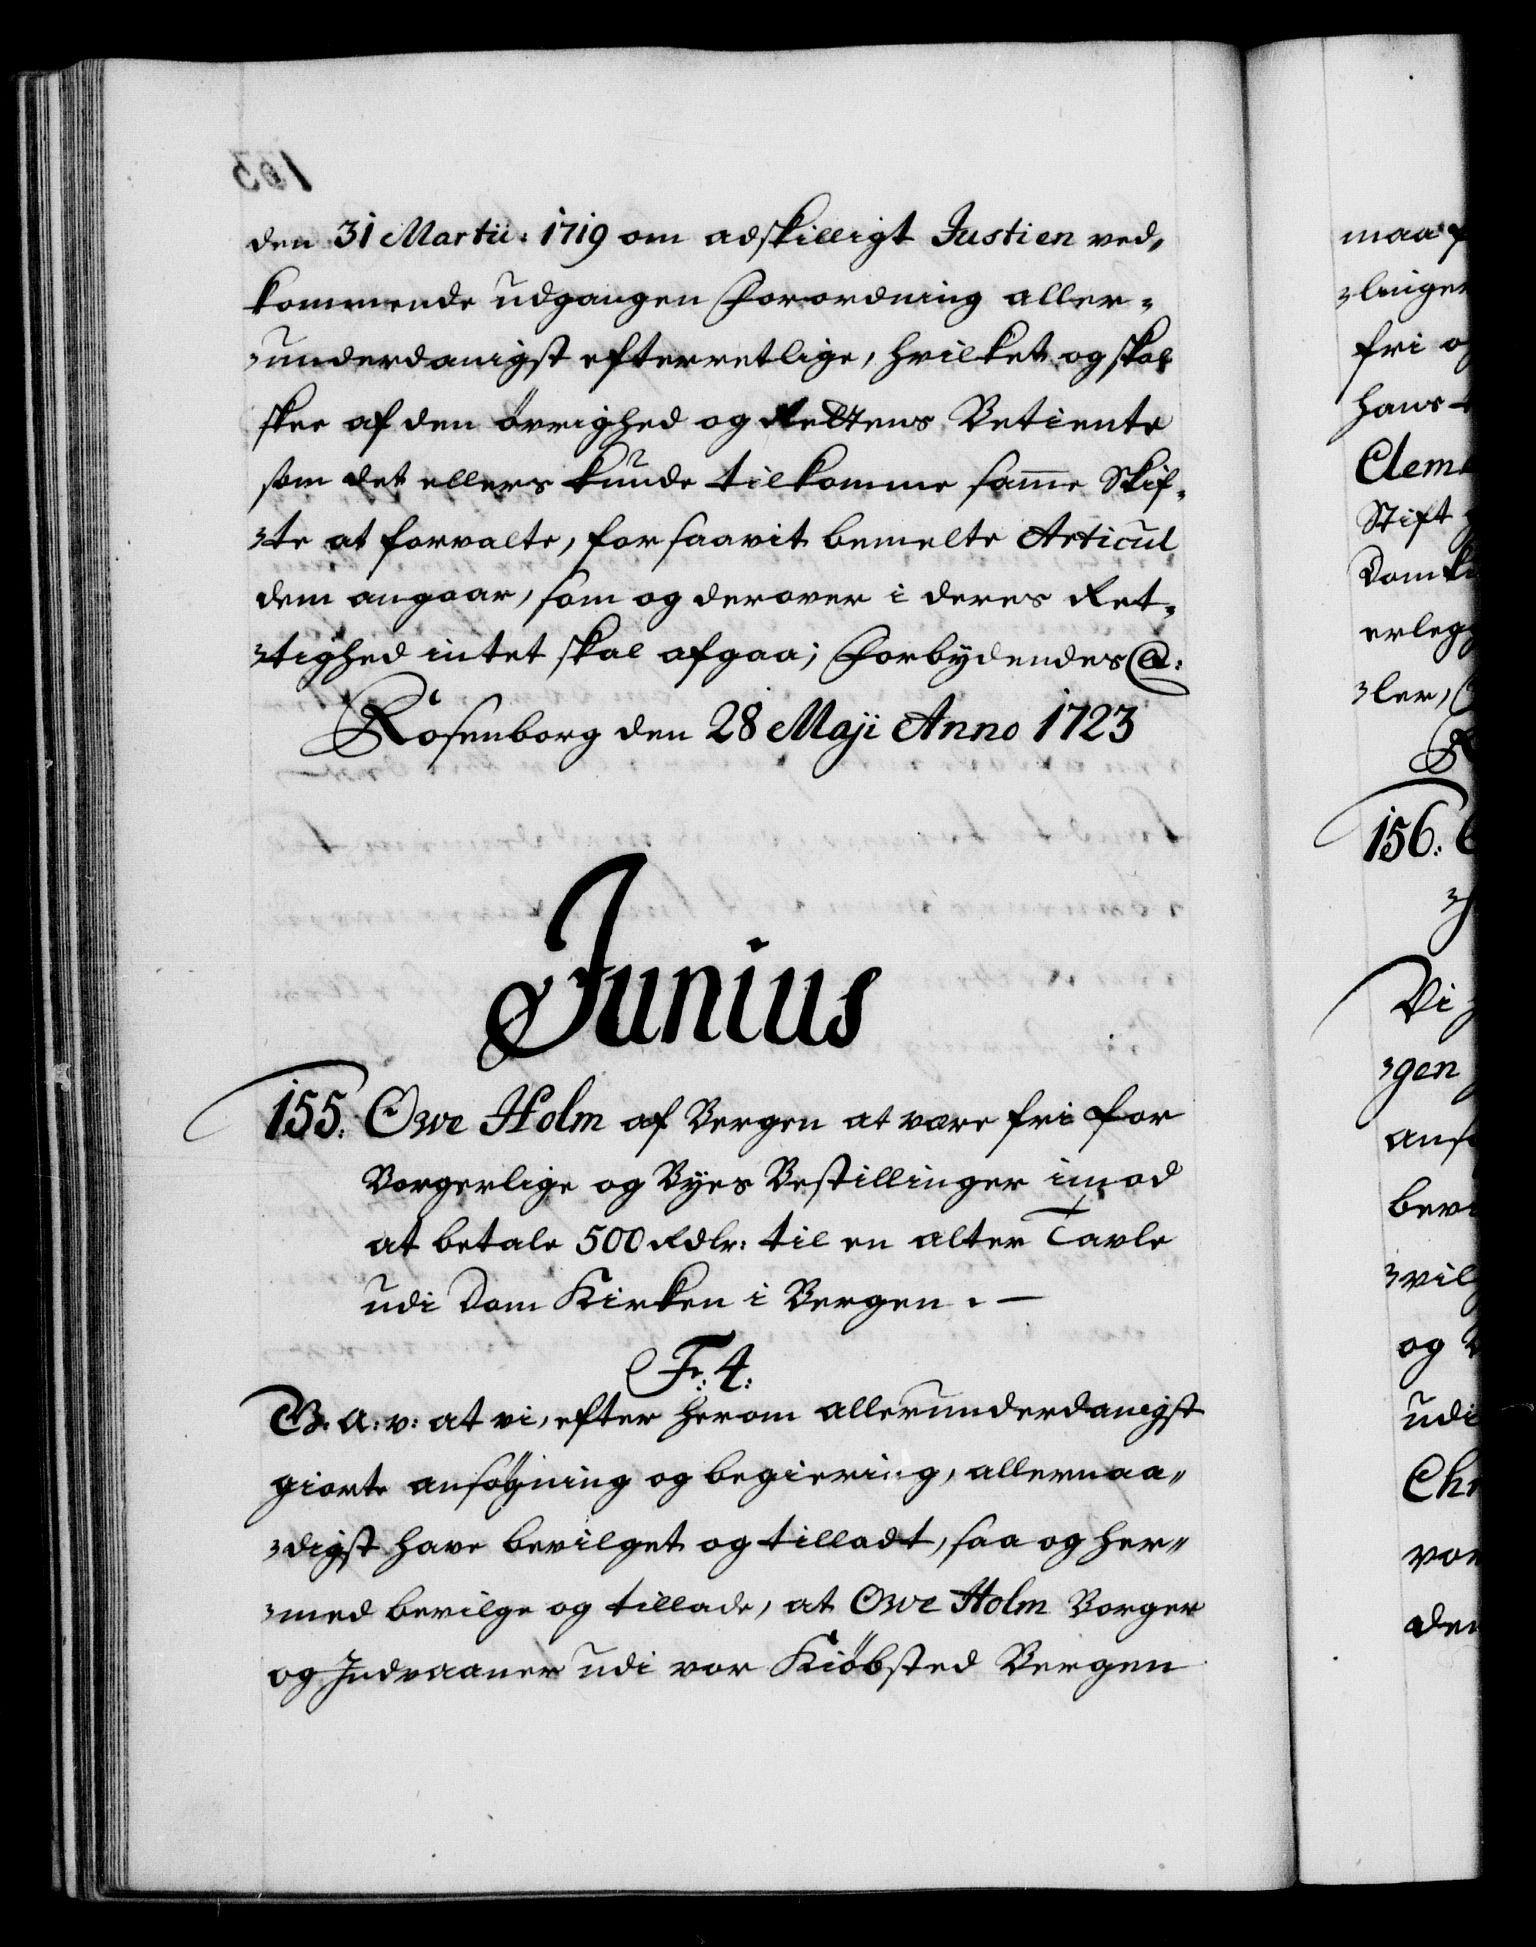 den 31 Martii: 1719 om adskilligt Justien ved-
kommende udgangen Forordning aller-
-underdanigst efterretlige, hvilket og skal
skee af den övrighed og Rettens Betiente
som det ellers kunde tilkomme same Skif-
-te at forvalte, forsaavit bemelte Articul
dem angaar, som og derover i deres Ret-
-tighed intet skal afgaa; Forbydendes @:
Rosenborg den 28 Maji Anno 1723
Junius
155. Owe Holm af Bergen at være fri for
Borgerlige og Byes Bestillinger imod
at betale 500 Rdlr: til en alter Tavle
udi Dom Kirken i Bergen. -
Fr: 4:
G. A: v: at vi, efter herom allerunderdanigst
giorte ansøgning og begiering, allernaa-
-digst have bevilget og tilladt, saa og her-
-med bevilge og tillade, at Owe Holm Borger
og Indvaaner udi vor Kiöbsted Bergen
maa
-linger
fri og
hans
Clem
Stift
Domki
erleg
-ler,
156.
Vi
-gen
ans
bevi
-vil
og
udi
Chr
vor
den